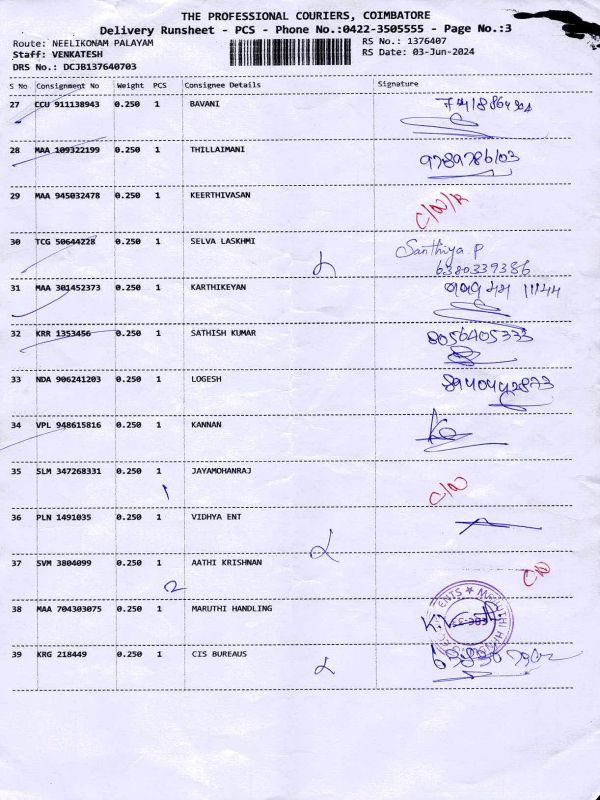 THE PROFESSIONAL COURIERS, COIMBATORE
Delivery Runsheet - PCS - Phone No.:0422-3505555 - Page No.:3
Route: NEELIKONAM PALAYAM RS No.: 1376407
Staff: VENKATESH RS Date: 03-Jun-2024
DRS No.: DCJB137640703
S No Consignment No Weight PCS Consignee Details Signature
27 CCU 911138943 0.250 1 BAVANI
28 MAA 109322199 0.250 1 THILLAIMANI 9789786103
29 MAA 945032478 0.250 1 KEERTHIVASAN C/N/R
30 TCG 50644228 0.250 1 SELVA LASKHMI Santhiya P
6380339386
31 MAA 301452373 0.250 1 KARTHIKEYAN
32 KRR 1353456 0.250 1 SATHISH KUMAR 8056405333
33 NDA 906241203 0.250 1 LOGESH 8940442873
34 VPL 948615816 0.250 1 KANNAN
35 SLM 347268331 0.250 1 JAYAMOHANRAJ C/N
1
36 PLN 1491035 0.250 1 VIDHYA ENT
37 SVM 3804099 0.250 1 AATHI KRISHNAN C/N
2
38 MAA 704303075 0.250 1 MARUTHI HANDLING
39 KRG 218449 0.250 1 CIS BUREAUS